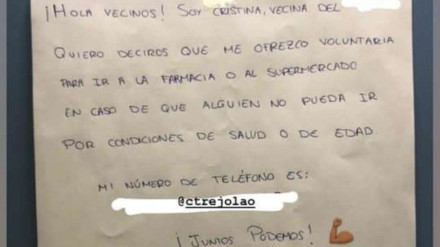 ¡HOLA VECINOS! SOY CRISTINA, VECINA DEL
QUIERO DECIROS QUE ME OFREZCO VOLUNTARIA
PARA IR A LA FARMACIA O AL SUPERMERCADO
EN CASO DE QUE ALGUIEN NO PUEDA IR
POR CONDICIONES DE SALUD O DE EDAD.
MI NÚMERO DE TELÉFONO ES:
@ctrejolao
¡JUNTOS PODEMOS!